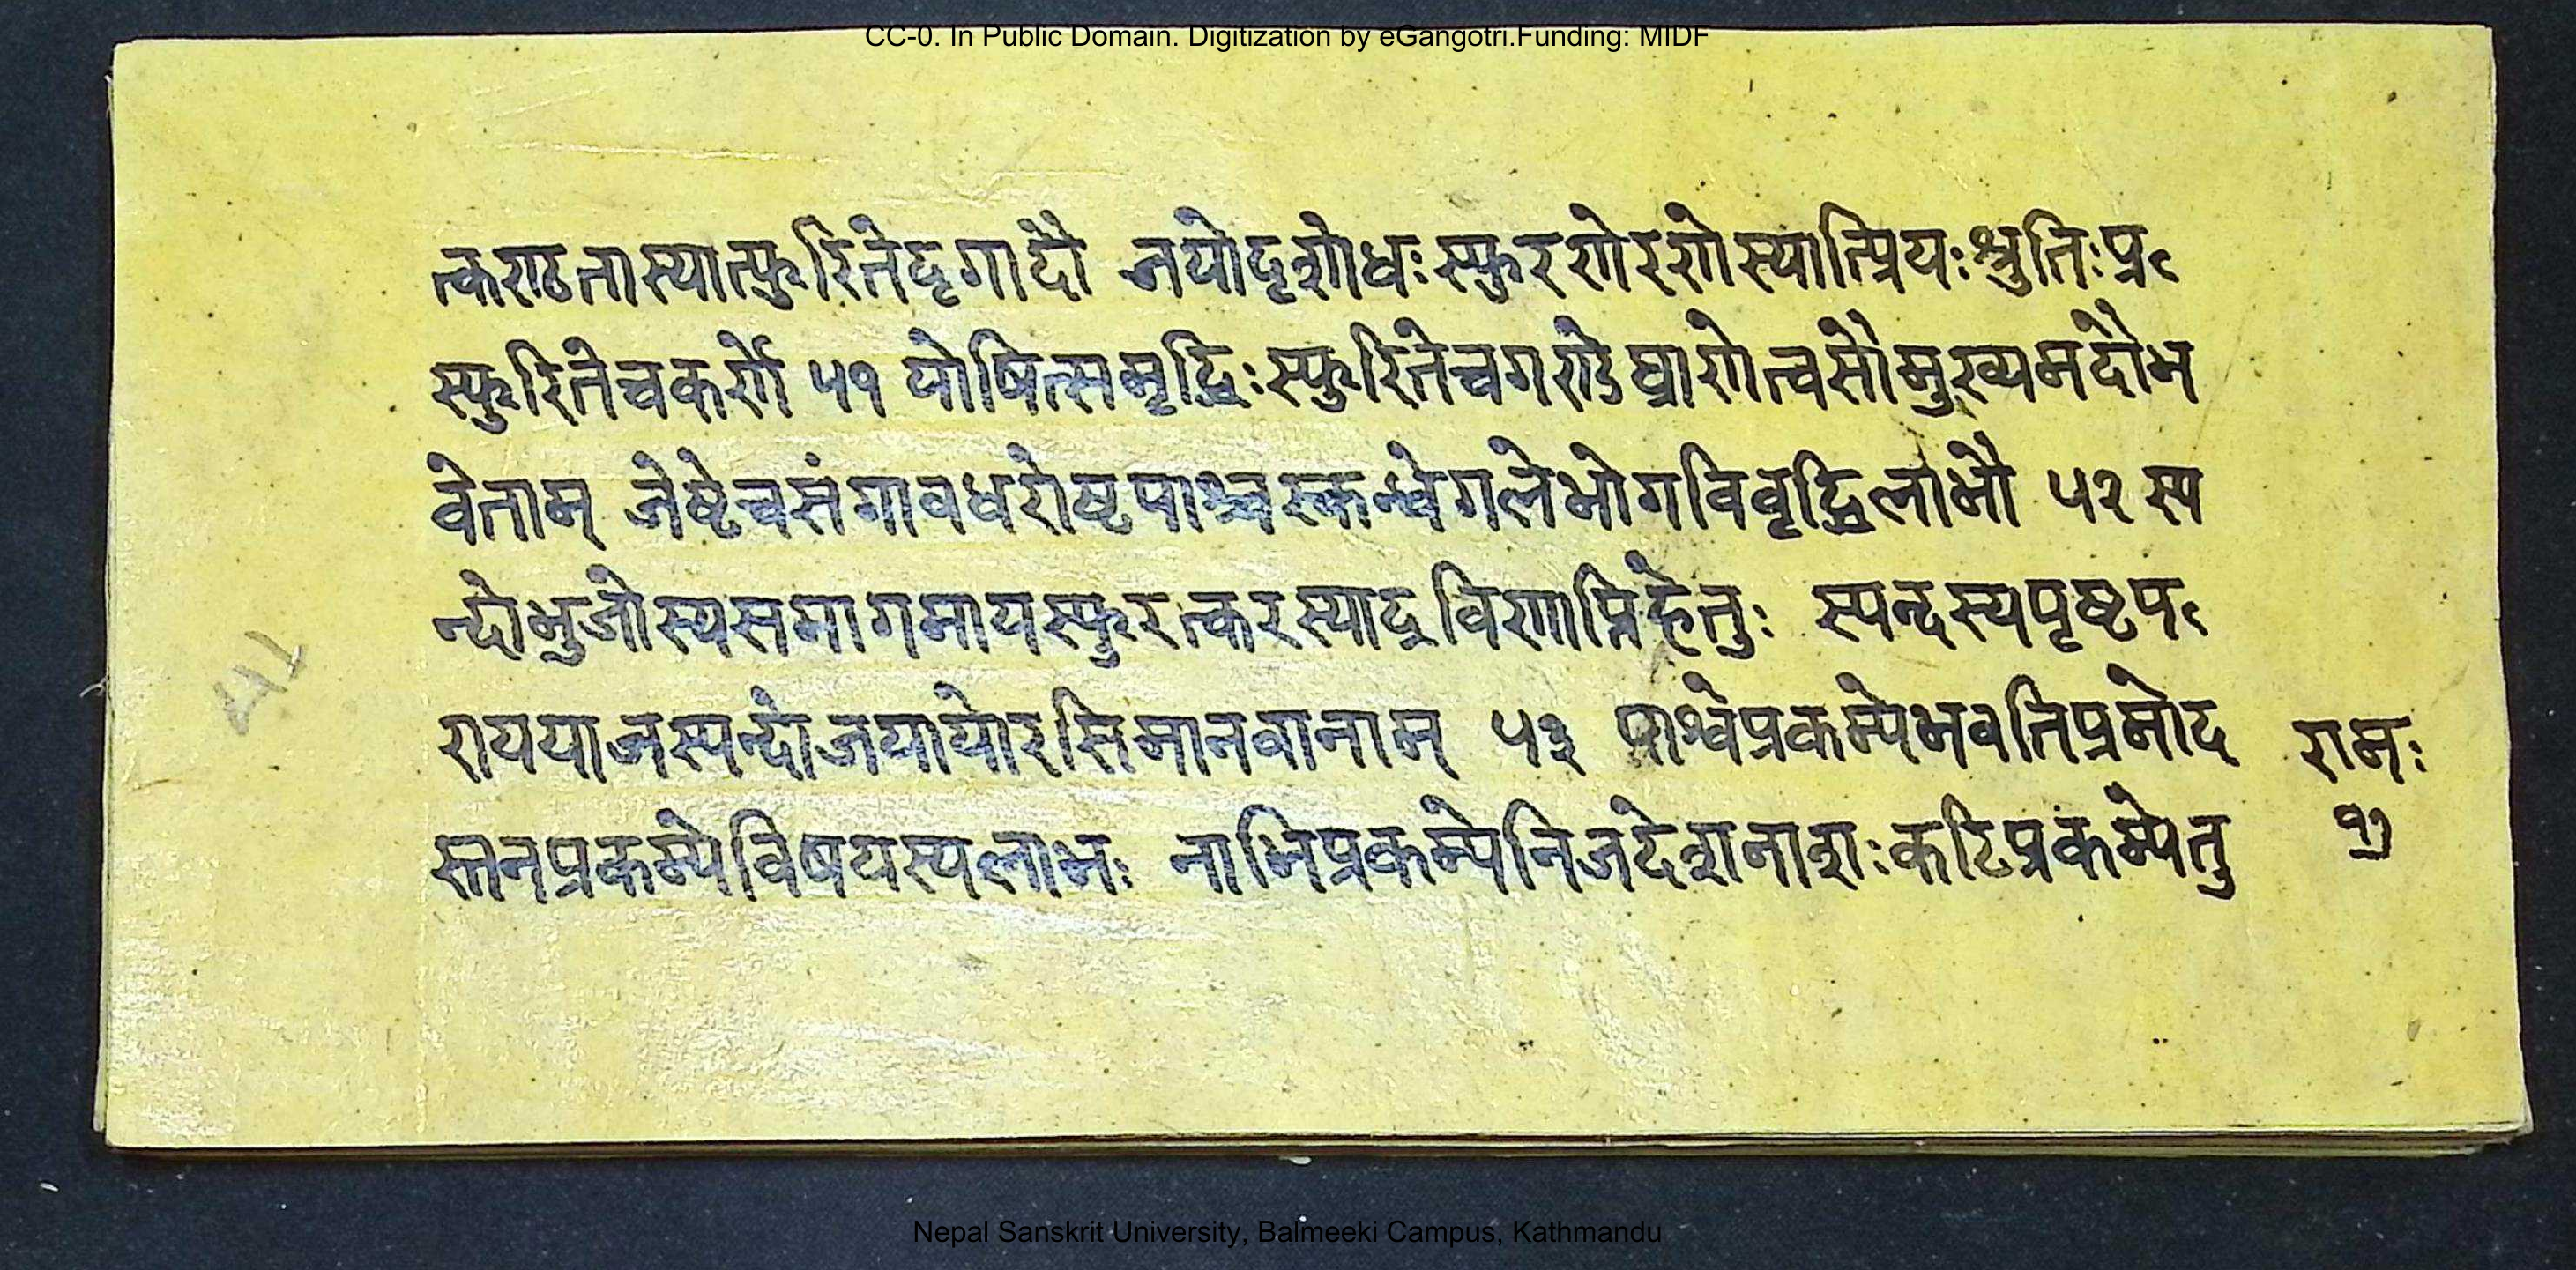 CC-0. In Public Domain. Digitization by eGangotri.Funding: MIDF
त्कराठतास्यात्स्फुरितेदृगादौ जयोदृशोधःस्फुरणेरणेस्यात्प्रियःश्रुतिःप्र
स्फुरितेचकर्णे ५१ योषित्समृद्धिःस्फुरितेचगण्डेघ्राणेत्वसौमुख्यमदौभ
वेताम् जेष्टेचसंगावधरोष्टपाश्चस्कन्धेगलेभोगविवृद्धिलाभौ ५२ स्प
न्दोभुजोस्यसमागमायस्फुरत्करस्याद्रविणाप्तिहेतुः स्पन्दस्यपृष्टप
राययाजस्पन्दोजयायोरसिमानवानाम् ५३ पार्श्वेप्रकम्पेभवतिप्रमोद
स्तनप्रकम्पेविषयस्यलाभः नाभिप्रकम्पेनिजदेशनाशःकटिप्रकम्पेतु
रामः
१७
Nepal Sanskrit University, Balmeeki Campus, Kathmandu